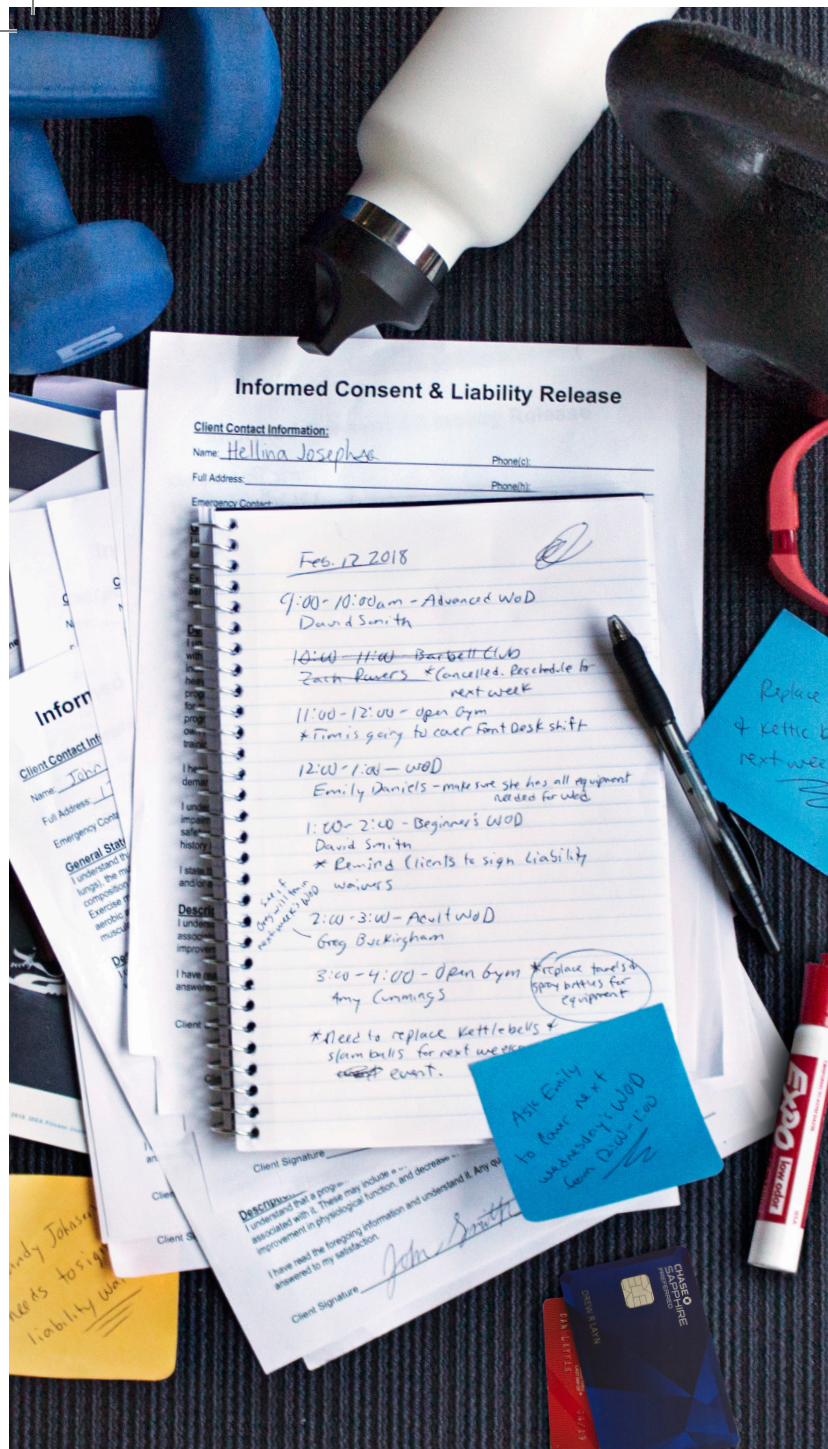 Informed Consent & Liability Release
Client Contact Information:
Name: Hellina Josephs
Phone(c):
Full Address:
Phone(h):
Emergency Contact:
Feb. 12 2018
9:00-10:00am - Advanced WOD
David Smith
10:00 - 11:00 - Barbell Club
Zach *Cancelled. Reschedule for
next week
11:00-12:00 - open Gym
*Tim is going to cover Font Desk shift
12:00-1:00 - WOD
Emily Daniels - make sure she has all equipment
needed for Wed
1:00-2:00 - Beginner's WOD
David Smith
* Remind Clients to sign liability
waivers
See if
Greg will train
next week's WOD
2:00-3:00 - Adult WOD
Greg Buckingham
3:00-4:00 - Open Gym
Amy Cummings
*replace towels &
spray bottles for
equipment
*Need to replace kettlebells &
slam balls for next weeks
event.
Ask Emily
to cover next
Wednesday's WOD
from 12:00-1:00
Replace
& kettle b
next wee
Inforn
Client Contact Inf
Name: John
Full Address: 17
Emergency Conta
General Stat
I understand th
lungs), the m
composition
Exercise m
aerobic a
muscul
Descri
I unders
associ
improver
I have rea
answered
Client
Client Signature
Description
I understand that a progra
associated with it. These may include a
improvement in physiological function, and decrease
I have read the foregoing information and understand it. Any qu
answered to my satisfaction.
Client Signature John Smith
ndy Johnson
needs to sign
liability wai
EXPO
low odor
CHASE
SAPPHIRE
PREFERRED
DREW R LAYN